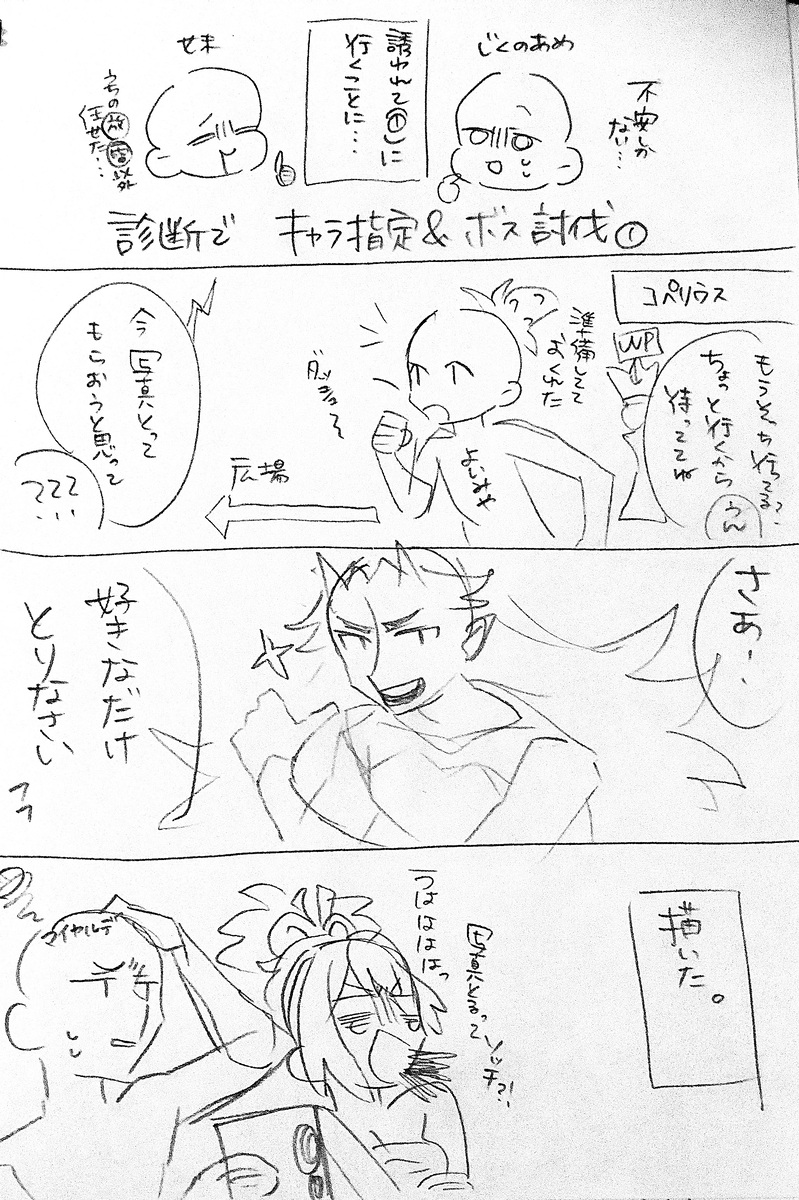 じくのあめ
不安しか
ない…
誘われて①に
行くことに…
せま
うちの
以外
任せた…
診断で キャラ指定&ボス討伐①
コペリウス
WP
もうそっち行ってる?
ちょっと行くから
待っててね
うん
準備してて
おくれた
ダッシュ〜
よいみや
広場
今 写真とって
もらおうと思って
???
さあ…
好きなだけ
とりなさい
描いた。
写真とるって
ソッチ?!
つはははは
マイヤルデ